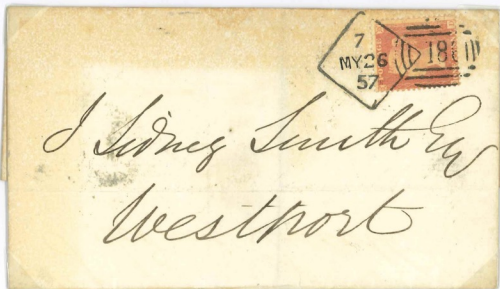 7
MY26
57
186
J Sidney Smith Esq
Westport